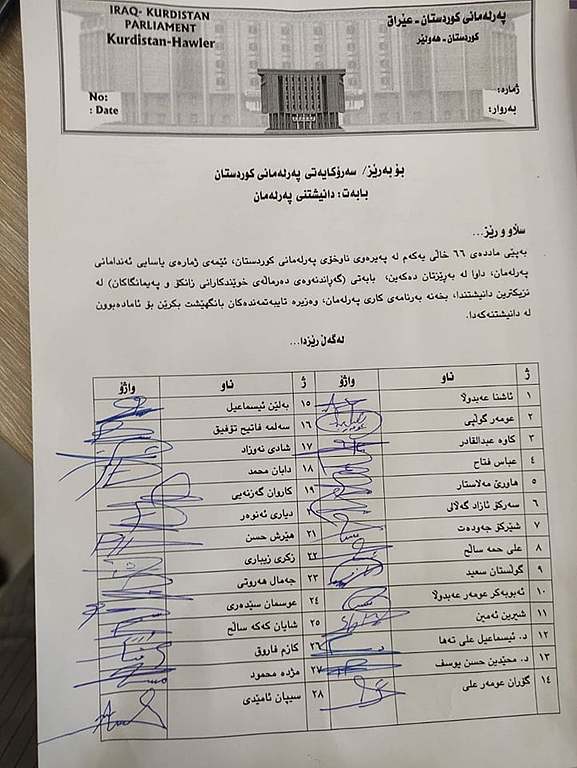 IRAQ- KURDISTAN
PARLIAMENT
Kurdistan-Hawler
پەرلەمانی کوردستان - عێراق
کوردستان - هەولێر
No:
: Date
ژمارە:
بەروار:
بۆ بەرێز/ سەرۆکایەتی پەرلەمانی کوردستان
بابەت: دانیشتنی پەرلەمان
سڵاو و رێز...
بەپێی ماددەی ٦٦ خاڵی یەکەم لە پەیرەوی ناوخۆی پەرلەمانی کوردستان، ئێمەی ژمارەی یاسایی ئەندامانی
پەرلەمان، داوا لە بەرێزتان دەکەین، بابەتی (گەڕاندنەوەی دەرماڵەی خوێندکارانی زانکۆ و پەیمانگاکان) لە
نزیکترین دانیشتندا، بخەنە بەرنامەی کاری پەرلەمان، وەزیرە تایبەتمەندەکان بانگهێشت بکرێن بۆ ئامادەبوون
لە دانیشتنەکەدا.
لەگەڵ رێزدا...
ژ ناو واژۆ ژ ناو واژۆ
١ ئاشنا عەبدوڵا ١٥ بەلێن ئیسماعیل
٢ عومەر گوڵپی ١٦ سەلمە فاتیح تۆفیق
٣ کاوە عبدالقادر ١٧ شادی نەوزاد
٤ عباس فتاح ١٨ دابان محمد
٥ هاوڕێ مەلاستار ١٩ کاروان گەزنەیی
٦ سەرکۆ ئازاد گەلاڵی ٢٠ دیاری ئەنوەر
٧ شێرکۆ جەودەت ٢١ هێرش حسن
٨ علی حمە ساڵح ٢٢ زکری زیباری
٩ گوڵستان سعید ٢٣ جەمال هەروتی
١٠ ئەبوبەکر عومەر عەبدوڵا ٢٤ عوسمان سێدەری
١١ شیرین ئەمین ٢٥ شایان کەکە ساڵح
١٢ د. ئیسماعیل علی تەها ٢٦ کازم فاروق
١٣ د. محێدین حسن یوسف ٢٧ مژدە محمود
١٤ گۆران عومەر علی ٢٨ سیپان ئامێدی